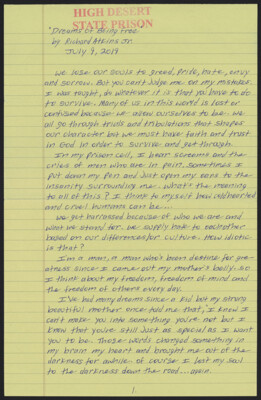 HIGH DESERT
STATE PRISON
"Dreams of Being Free"
by Richard Atkins Jr.
July 9, 2019
We lose our souls to greed, pride, hate, envy
and sorrow. But you can't judge me on my mistakes.
I was taught, do whatever it is that you have to do
to survive. Many of us in this world is lost or
confused because we allow ourselves to be. We
all go through trials and tribulations that shapes
our character but we must have faith and trust
in God in order to survive and get through.
In my prison cell, I hear screams and the
cries of men who are in pain. Sometimes I
put down my pen and just open my ears to the
insanity surrounding me. What's the meaning
to all of this? I think to myself how coldhearted
and cruel humans can be...
We get harrassed because of who we are and
what we stand for. We supply hate to each other
based on our differences for culture. How idiotic
is that?
I'm a man, a man who's been destine for gre-
atness since I came out my mother's belly. So
I think about my freedom, freedom of mind and
the freedom of others every day.
I've had many dreams since a kid but my strong
beautiful mother once told me that, I know I
can't make you into something you're not but I
know that you're still just as special as I want
you to be. Those words changed something in
my brain my heart and brought me out of the
darkness for awhile. Of course I lost my soul
to the darkness down the road...
1